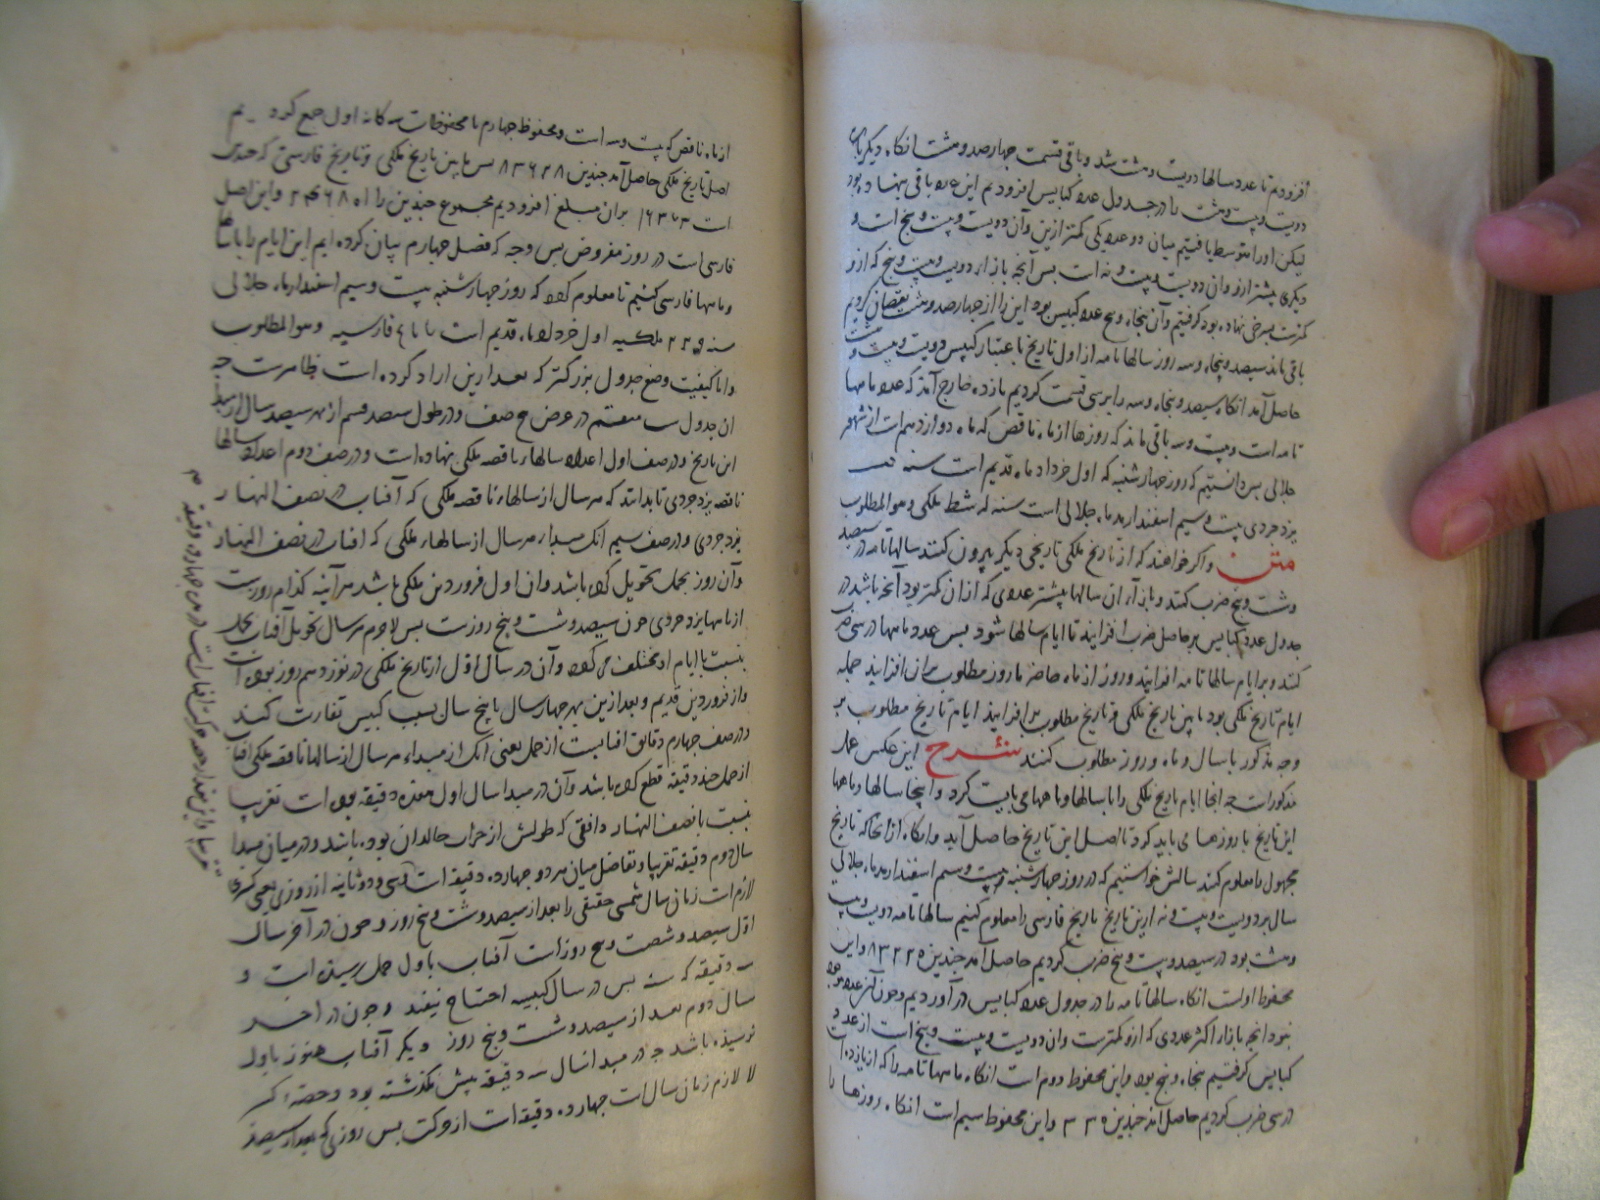 افزودیم تا عدد سالها دویست و هشت شد و باقی قسمت چهارصد و هشت انکاه دیکر بار
دویست و بیست و هشت را در جدول عدد کبایس افزودیم این عدد باقی بنهاده بود
لیکن او را متوسط یافتیم میان دو عدد یکی کمتر ازین و آن دویست و بیست و پنج است و
دیکری بیشتر ازو و ان دویست و بیست و نه است بس آنچه بازاء دویست و بیست و پنج که ازو
کمترست بسرخی نهاده بود کرفتیم و آن پنجاه و پنج عدد کبیس بود این را از چهارصد و هشت نقصان کردیم
باقی ماند سیصد و پنجاه و سه روز سالها تامه از اول تاریخ باعتبار کبیس دویست و بیست و هشت
حاصل آمد انکاه سیصد و پنجاه و سه را بر سی قسمت کردیم یازده خارج آمد که عدد ماهها
تامه است و بیست و سه باقی ماند که روزها از ماه ناقص که ماه دوازدهم است از شهور
جلالی بس دانستیم که روز چهارشنبه که اول خرداد ماه قدیم است سنه
یزدجردی بیست و سیم اسفندارمد ماه جلالی است سنه ملکی و هو المطلوب
متن واکر خواهند که از تاریخ ملکی تاریخی دیکر بیرون کنند سالها تامه در سیصد
و شصت و پنج ضرب کنند و بازاء آن سالها بیشتر عددی که از ان کمتر بود آنچه باشد در
جدول عدد کبایس بر حاصل ضرب افزایند تا ایام سالها شود بس عدد ماهها در سی ضرب
کنند و بر ایام سالها تامه افزایند و روز از ماه حاضر تا روز مطلوب بران افزایند جمله
ایام تاریخ ملکی بود ما بین تاریخ ملکی و تاریخ مطلوب بر افزایند ایام تاریخ مطلوب بر
وجه مذکور با سال و ماه و روز مطلوب کنند شرح این عکس عمل
مذکورست چه انجا ایام تاریخ ملکی را با سالها و ماهها می بایست کرد و اینجا سالها و ماهها
این تاریخ با روزها می باید کرد تا اصل این تاریخ حاصل آید و انکاه از انجا که تاریخ
مجهول را معلوم کنند مثالش خواستیم که در روز چهارشنبه بیست و سیم اسفندارمد ماه جلالی
سال بر دویست و بیست و نه ازین تاریخ تاریخ فارسی را معلوم کنیم سالها تامه دویست و بیست
و هشت بود در سیصد و شصت و پنج ضرب کردیم حاصل آمد چندین ۸۳۲۲۰ و این
محفوظ اولست انکاه سالها تامه را در جدول عدد کبایس در آوردیم و چون این عدد موجود
نبود آنچه بازاء اکثر عددی که ازو کمترست و ان دویست و بیست و پنج است از عدد
کبایس کرفتیم پنجاه و پنج بود و این محفوظ دوم است انکاه ماهها تامه را که یازده است
در سی ضرب کردیم حاصل آمد چندین ۳۳۰ و این محفوظ سیم است انکاه روزها را
از ماه ناقص که بیست و سه است و محفوظ چهارم با محفوظات سه کانه اول جمع کردیم
اصل تاریخ ملکی حاصل آمد چندین ۸۳۶۲۸ بس ما بین تاریخ ملکی و تاریخ فارسی که چندین
است ۱۶۳۱۷۳ بران مبلغ افزودیم مجموع چندین را و این اصل
فارسی است در روز مفروض بس وجه که فصل چهارم بیان کرده ایم این ایام را با سالها
و ماهها فارسی کنیم تا معلوم کردد که روز چهارشنبه بیست و سیم اسفندارمد ماه جلالی
سنه ۲۲۹ ملکیه اول خرداد ماه قدیم است فارسیه و هو المطلوب
و اما کیفیت وضع جدول بزرکتر که بعد ازین ایراد کرده است ظاهرست چه
ان جدول منقسم در عرض صف و در طول سیصد قسم از بهر سیصد سال از مبدا
این تاریخ و در صف اول اعداد سالهاء ناقصه ملکی نهاده است و در صف دوم اعداد سالها
ناقصه یزدجردی تا بدانند که هر سال از سالهاء ناقصه ملکی که آفتاب در نصف النهار
یزدجردی و در صف سیم انک مبداء هر سال از سالهاء ملکی که افتاب در نصف النهار
و آن روز بحمل تحویل کرده باشد و ان اول فروردین ملکی باشد هرآینه کدام روزست
از ماهها یزدجردی چون سیصد و شصت و پنج روزست بس لاجرم هر سال تحویل آفتاب بحمل
بنسبت با ایام او مختلف می کردد و آن در سال اول از تاریخ ملکی در نوزدهم روز بوده است
و از فروردین قدیم و بعد ازین بهر چهار سال یا پنج سال بسبب کبیس تفاوت کند
و در صف چهارم دقایق افتابست از حمل یعنی انک از مبداء هر سال از سالها ناقصه ملکی افتاب
از حمل چند دقیقه قطع کرده باشد و آن در مبدا سال اول هفده دقیقه بوده است تقریبا
نسبت با نصف النهار دافقی که طولش از جزایر خالدان بود باشد و در میان مبدا
سال دوم دقیقه تقریبا و تفاضل میان هر دو چهارده دقیقه است و سی و دو ثانیه از روزی یعنی کسری
لازم است زمان سال شمسی حقیقی را بعد از سیصد و شصت و پنج روز و چون در آخر سال
اول سیصد و شصت و پنج روز است آفتاب باول حمل رسیده است و
سه دقیقه کذشته بس در سال کبیسه احتیاج نیفتد و چون در اخر
سال دوم بعد از سیصد و شصت و پنج روز دیکر آفتاب هنوز باول
نرسیده باشد چه در مبدا سال سه دقیقه بیش نکذشته بود و حصه کسر
لازم زمان سال است چهارده دقیقه است از حرکت بس روزی که بعد از سیصد